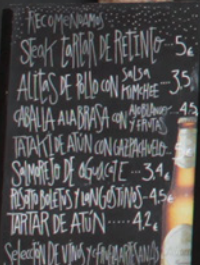 RECOMENDAMOS
Steak TARTAR DE RETINTO - 5€
ALITAS DE POLLO CON SALSA KIMCHEE - 3,5
CABALLA A LA BRASA CON AJOBLANCO Y FRUTAS - 4,5
TATAKI DE ATÚN CON GAZPACHUELO
SALMOREJO DE AGUACATE ... 3,4€
RISOTTO BOLETUS Y LANGOSTINOS - 4,5€
TARTAR DE ATÚN ..... 4,2€
Selección DE VINOS Y CERVEZA ARTESANAS